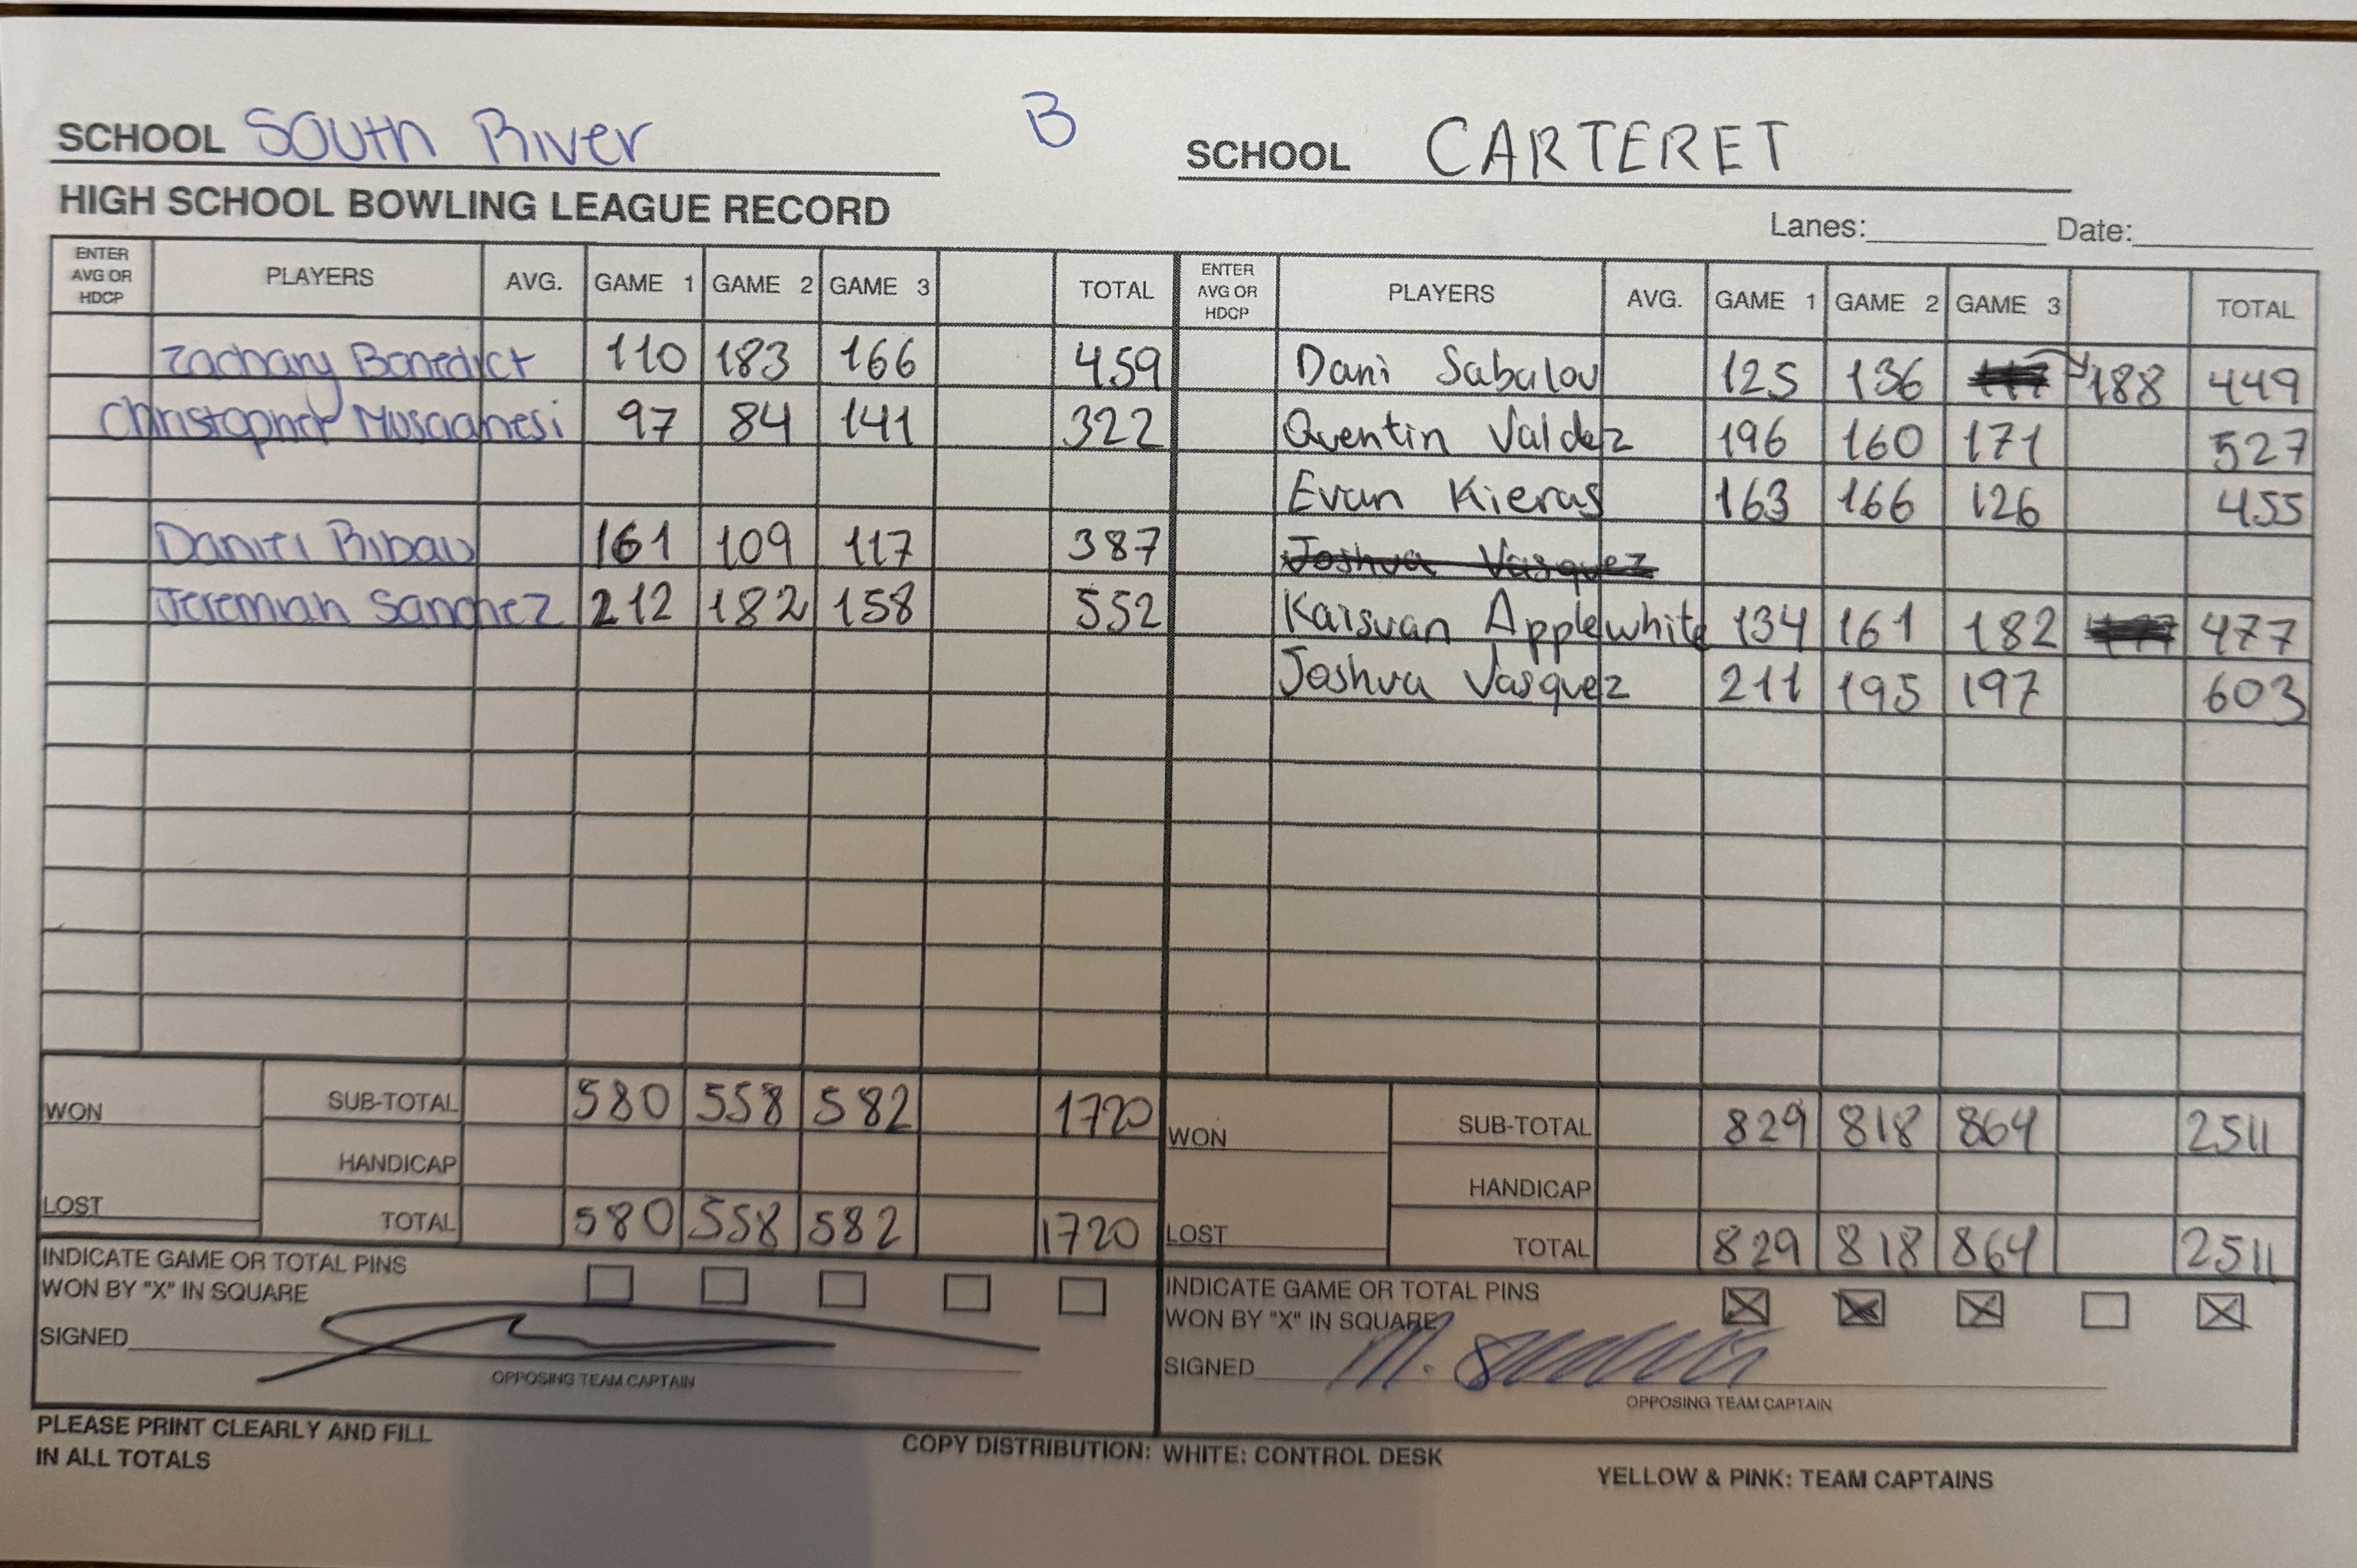 SCHOOL South River B SCHOOL CARTERET
HIGH SCHOOL BOWLING LEAGUE RECORD
Lanes: Date:
ENTER AVG OR HDCP PLAYERS AVG. GAME 1 GAME 2 GAME 3 TOTAL ENTER AVG OR HDCP PLAYERS AVG. GAME 1 GAME 2 GAME 3 TOTAL
Zachary Benedict 110 183 166 459 Dani Sabalou 125 136 188 449
Christopher 97 84 141 322 Quentin Valdez 196 160 171 527
Evan Kieras 163 166 126 455
Daniel Ribau 161 109 117 387 Joshua Vasquez
Jeremiah Sanchez 212 182 158 552 Kaisuan Applewhite 134 161 182 477
Joshua Vasquez 211 195 197 603
WON SUB-TOTAL 580 558 582 1720 WON SUB-TOTAL 829 818 864 2511
HANDICAP HANDICAP
LOST TOTAL 580 558 582 1720 LOST TOTAL 829 818 864 2511
INDICATE GAME OR TOTAL PINS INDICATE GAME OR TOTAL PINS
WON BY "X" IN SQUARE WON BY "X" IN SQUARE X X X X
SIGNED SIGNED M.
OPPOSING TEAM CAPTAIN OPPOSING TEAM CAPTAIN
PLEASE PRINT CLEARLY AND FILL
IN ALL TOTALS
COPY DISTRIBUTION: WHITE: CONTROL DESK
YELLOW & PINK: TEAM CAPTAINS